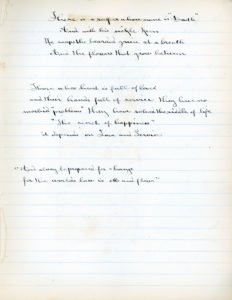 There is a reaper whose name is "Death"
And with his sickle keen
He reapeth the bearded grain at a breath
And the flowers that grow between
Those whose heart is full of love
and their hands full of service They have no
morbid problems They have solved the riddle of life
"The secret of happiness"
it depends on Love and Service
"And always be prepared for change
for the world's law is ebb and flow"